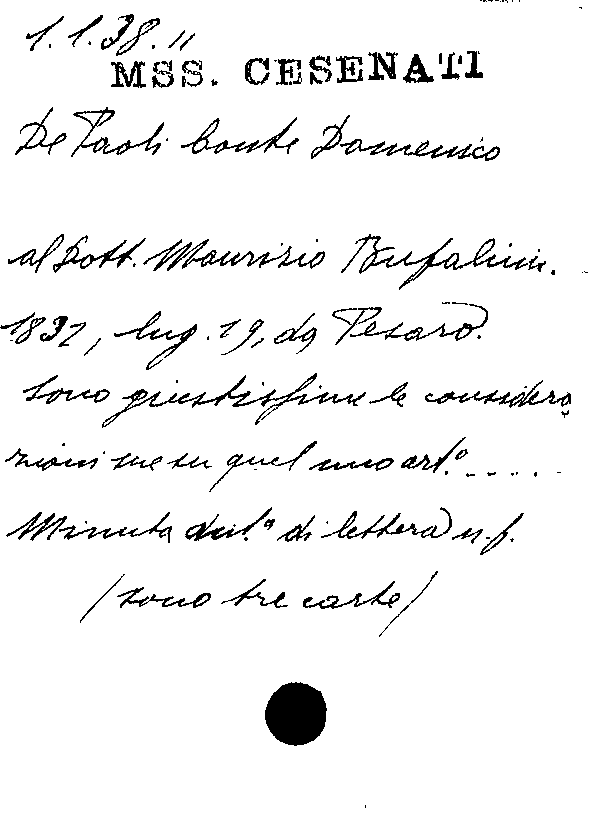 1.1.38.11
MSS. CESENATI
De Paoli Conte Domenico
al Dott. Maurizio Bufalini.
1832, lug. 19, da Pesaro.
Sono giustissime le considera
zioni sue su quel mio art.º .....
Minuta aut.ª di lettera n.f.
(sono tre carte)